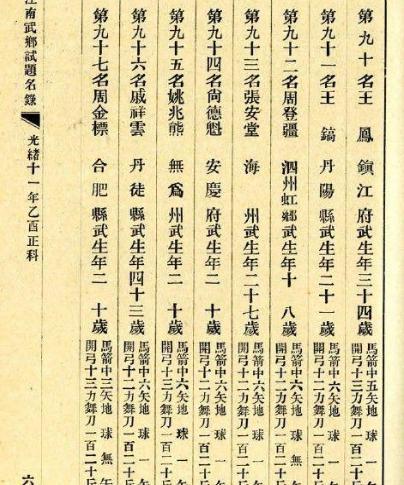 第九十名王　鳳　鎮江府武生年三十四歲　馬箭中五矢地　球　一　
開弓十三力舞刀一百二十
第九十一名王　鎬　丹陽縣武生年二十一歲　馬箭中六矢地　球　一　
開弓十二力舞刀一百二十
第九十二名周登疆　泗州虹鄉武生年十　八歲　馬箭中六矢地　球　無　
開弓十二力舞刀一百二十
第九十三名張安堂　海　州武生年二十七歲　馬箭中六矢地　球　一　
開弓十二力舞刀一百二十
第九十四名尙德魁　安慶府武生年二　十歲　馬箭中六矢地　球　一　
開弓十二力舞刀一百二十
第九十五名姚兆熊　無爲州武生年二　十歲　馬箭中六矢地　球　一　
開弓十三力舞刀一百二十
第九十六名戚祥雲　丹徒縣武生年四十三歲　馬箭中六矢地　球　一　
開弓十二力舞刀一百二十
第九十七名周金標　合肥縣武生年二　十歲　馬箭中三矢地　球　無　
開弓十三力舞刀一百二十
江南武鄉試題名錄　光緒十一年乙酉正科　六